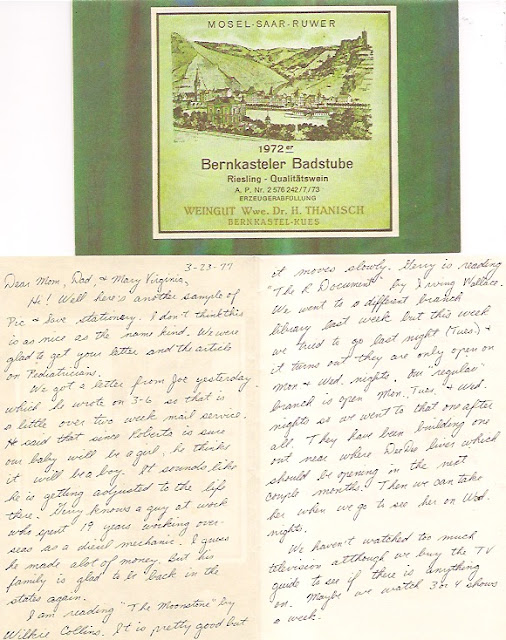 MOSEL-SAAR-RUWER
1972er
Bernkasteler Badstube
Riesling - Qualitätswein
A. P. Nr. 2 576 242/7/73
ERZEUGERABFÜLLUNG
WEINGUT Wwe. Dr. H. THANISCH
BERNKASTEL-KUES
3-23-77
Dear Mom, Dad, & Mary Virginia,
Hi! Well here's another sample of
Pic & Save stationery. I don't think this
is as nice as the name kind. We were
glad to get your letter and the article
on Pediatricians.
We got a letter from Joe yesterday
which he wrote on 3-6 so that is
a little over two week mail service.
He said that since Roberta is sure
our baby will be a girl, he thinks
it will be a boy. It sounds like
he is getting adjusted to the life
there. Gerry knows a guy at work
who spent 19 years working over-
seas as a diesel mechanic. I guess
he made alot of money. But his
family is glad to be back in the
states again.
I am reading "The Moonstone" by
Wilkie Collins. It is pretty good but
it moves slowly. Gerry is reading
"The R Document" by Irving Wallace.
We went to a different branch
library last week but this week
we tried to go last night (Tues.) &
it turns out they are only open on
Mon & Wed. nights. Our "regular"
branch is open Mon., Tues. & Wed.
nights so we went to that one after
all. They have been building one
out near where DeeDee lives which
should be opening in the next
couple months. Then we can take
her when we go to see her on Wed.
nights.
We haven't watched too much
television although we buy the TV
guide to see if there is anything
on. Maybe we watch 3 or 4 shows
a week.